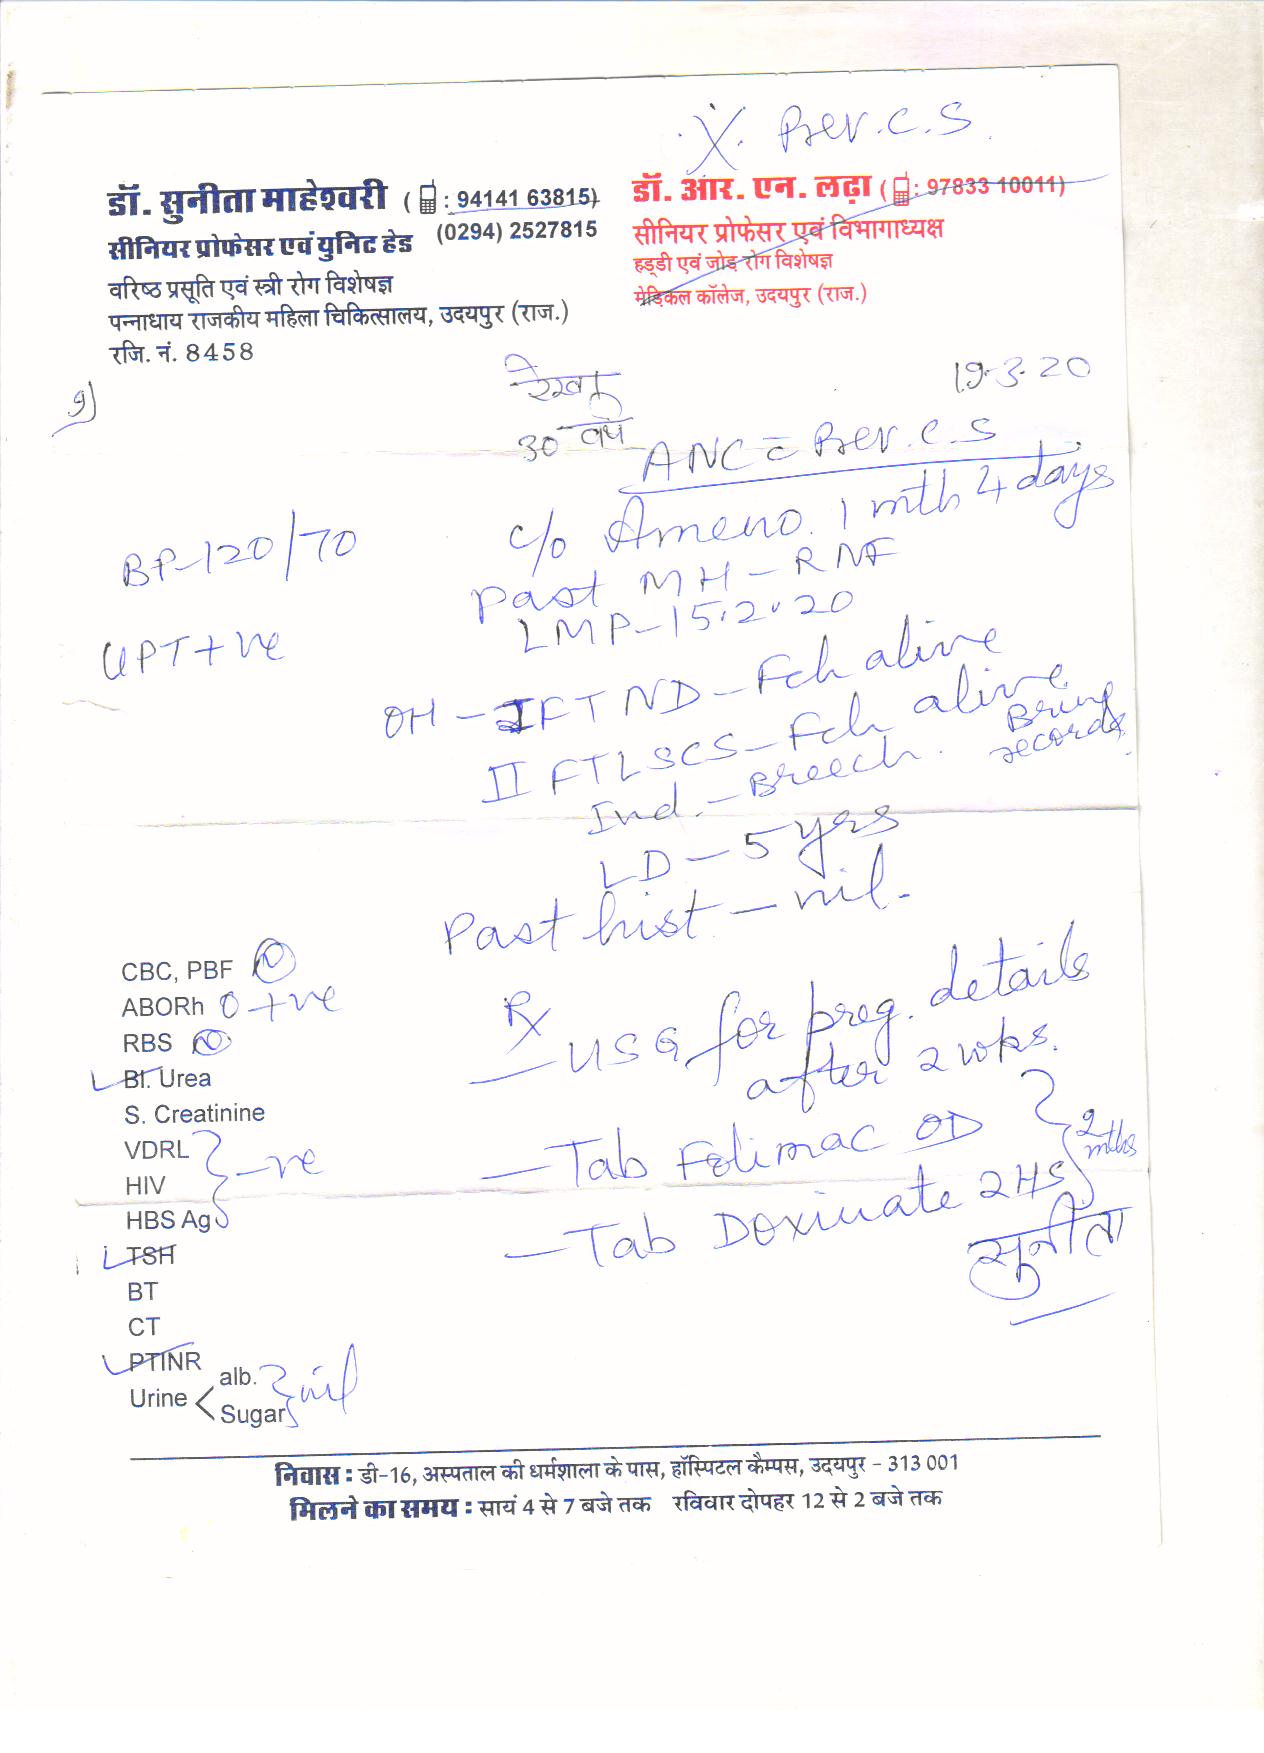 X. Prev. C.S.
डॉ. सुनीता माहेश्वरी ( : 94141 63815)
(0294) 2527815
सीनियर प्रोफेसर एवं युनिट हेड
वरिष्ठ प्रसूति एवं स्त्री रोग विशेषज्ञ
पन्नाधाय राजकीय महिला चिकित्सालय, उदयपुर (राज.)
रजि. नं. 8458
डॉ. आर. एन. लढ़ा ( : 97833 10011)
सीनियर प्रोफेसर एवं विभागाध्यक्ष
हड्डी एवं जोड़ रोग विशेषज्ञ
मेड़िकल कॉलेज, उदयपुर (राज.)
रेखा
30 वर्ष
19.3.20
ANC c Prev. C.S
c/o Ameno. 1 mth 4 days
Past MH - RNF
LMP - 15.2.20
BP - 120/70
UPT +ve
OH - I FTND - Fch alive
II FTLSCS - Fch alive
Ind. - Breech.
Bring
records.
LD - 5 yrs
Past hist - nil.
CBC, PBF N
ABORh O +ve
RBS N
Bl. Urea
S. Creatinine
VDRL
HIV
HBS Ag
-ve
TSH
BT
CT
PTINR
Urine < alb.
Sugar
nil
Rx
- USG for preg. details
after 2 wks.
- Tab Folimac OD
- Tab Doxinate 2 HS
2
mths
सुनीता
निवास : डी-16, अस्पताल की धर्मशाला के पास, हॉस्पिटल कैम्पस, उदयपुर - 313 001
मिलने का समय : सायं 4 से 7 बजे तक रविवार दोपहर 12 से 2 बजे तक